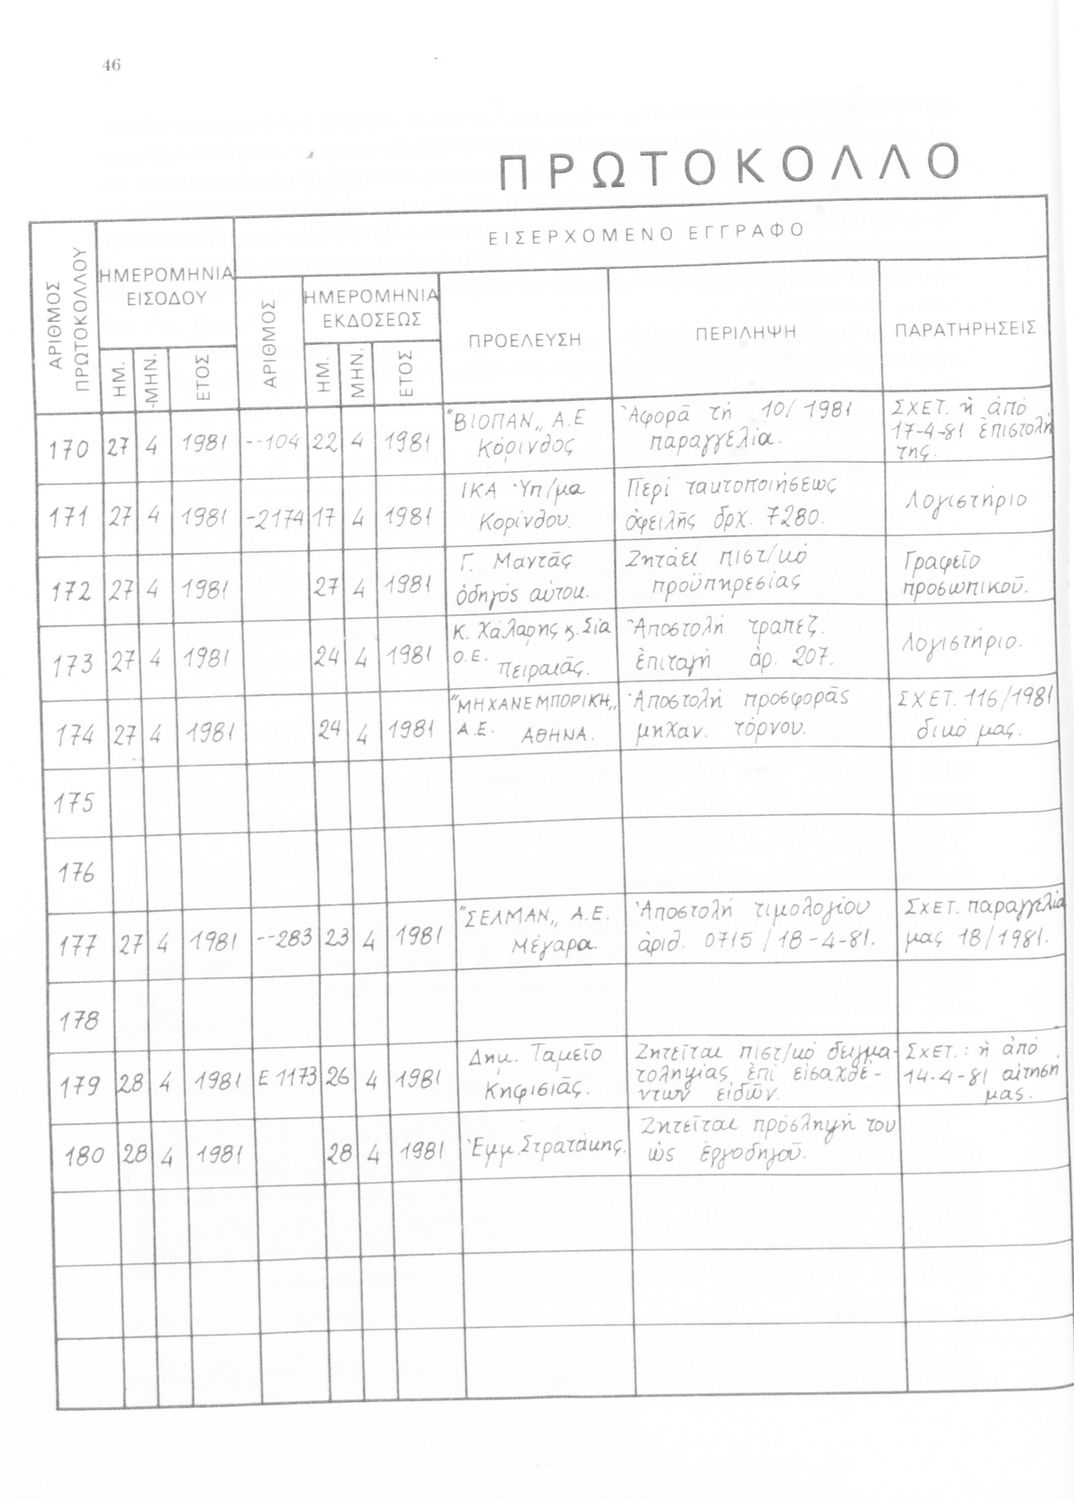 46
ΠΡΩΤΟΚΟΛΛΟ
ΑΡΙΘΜΟΣ ΠΡΩΤΟΚΟΛΛΟΥ
ΗΜΕΡΟΜΗΝΙΑ ΕΙΣΟΔΟΥ
ΕΙΣΕΡΧΟΜΕΝΟ ΕΓΓΡΑΦΟ
ΗΜ. ΜΗΝ. ΕΤΟΣ
ΑΡΙΘΜΟΣ
ΗΜΕΡΟΜΗΝΙΑ ΕΚΔΟΣΕΩΣ
ΗΜ. ΜΗΝ. ΕΤΟΣ
ΠΡΟΕΛΕΥΣΗ
ΠΕΡΙΛΗΨΗ
ΠΑΡΑΤΗΡΗΣΕΙΣ
170 27 4 1981 --104 22 4 1981
"ΒΙΟΠΑΝ,, Α.Ε
Κόρινθος
Ἀφορᾶ τή 10/1981
παραγγελία.
ΣΧΕΤ. ἡ ἀπό
17-4-81 ἐπιστολή
της.
171 27 4 1981 -2174 17 4 1981
ΙΚΑ Ὑπ/μα
Κορίνθου.
Περί ταυτοποιήσεως
ὀφειλῆς δρχ. 7280.
Λογιστήριο
172 27 4 1981 27 4 1981
Γ. Μαντᾶς
ὁδηγός αὐτοκ.
Ζητάει πιστ/κό
προϋπηρεσίας
Γραφεῖο
προσωπικοῦ.
173 27 4 1981 24 4 1981
Κ. Χάλαρης κ. Σία
Ο.Ε. Πειραιᾶς.
Ἀποστολή τραπεζ.
ἐπιταγή ἀρ. 207.
Λογιστήριο.
174 27 4 1981 24 4 1981
"ΜΗΧΑΝΕΜΠΟΡΙΚΗ,,
Α.Ε. ΑΘΗΝΑ.
Ἀποστολή προσφορᾶς
μηχαν. τόρνου.
ΣΧΕΤ. 116/1981
δικό μας.
175
176
177 27 4 1981 --283 23 4 1981
"ΣΕΛΜΑΝ,, Α.Ε.
Μέγαρα.
Ἀποστολή τιμολογίου
ἀριθ. 0715/18-4-81.
ΣΧΕΤ. παραγγελία
μας 18/1981.
178
179 28 4 1981 Ε1173 26 4 1981
Δημ. Ταμεῖο
Κηφισιᾶς.
Ζητεῖται πιστ/κό δειγμα-
τοληψίας ἐπί εἰσαχθέ-
ντων εἰδῶν.
ΣΧΕΤ.: ἡ ἀπό
14-4-81 αἴτηση
μας.
180 28 4 1981 28 4 1981
Ἐμμ. Στρατάκης.
Ζητεῖται πρόσληψή του
ὡς ἐργοδηγοῦ.